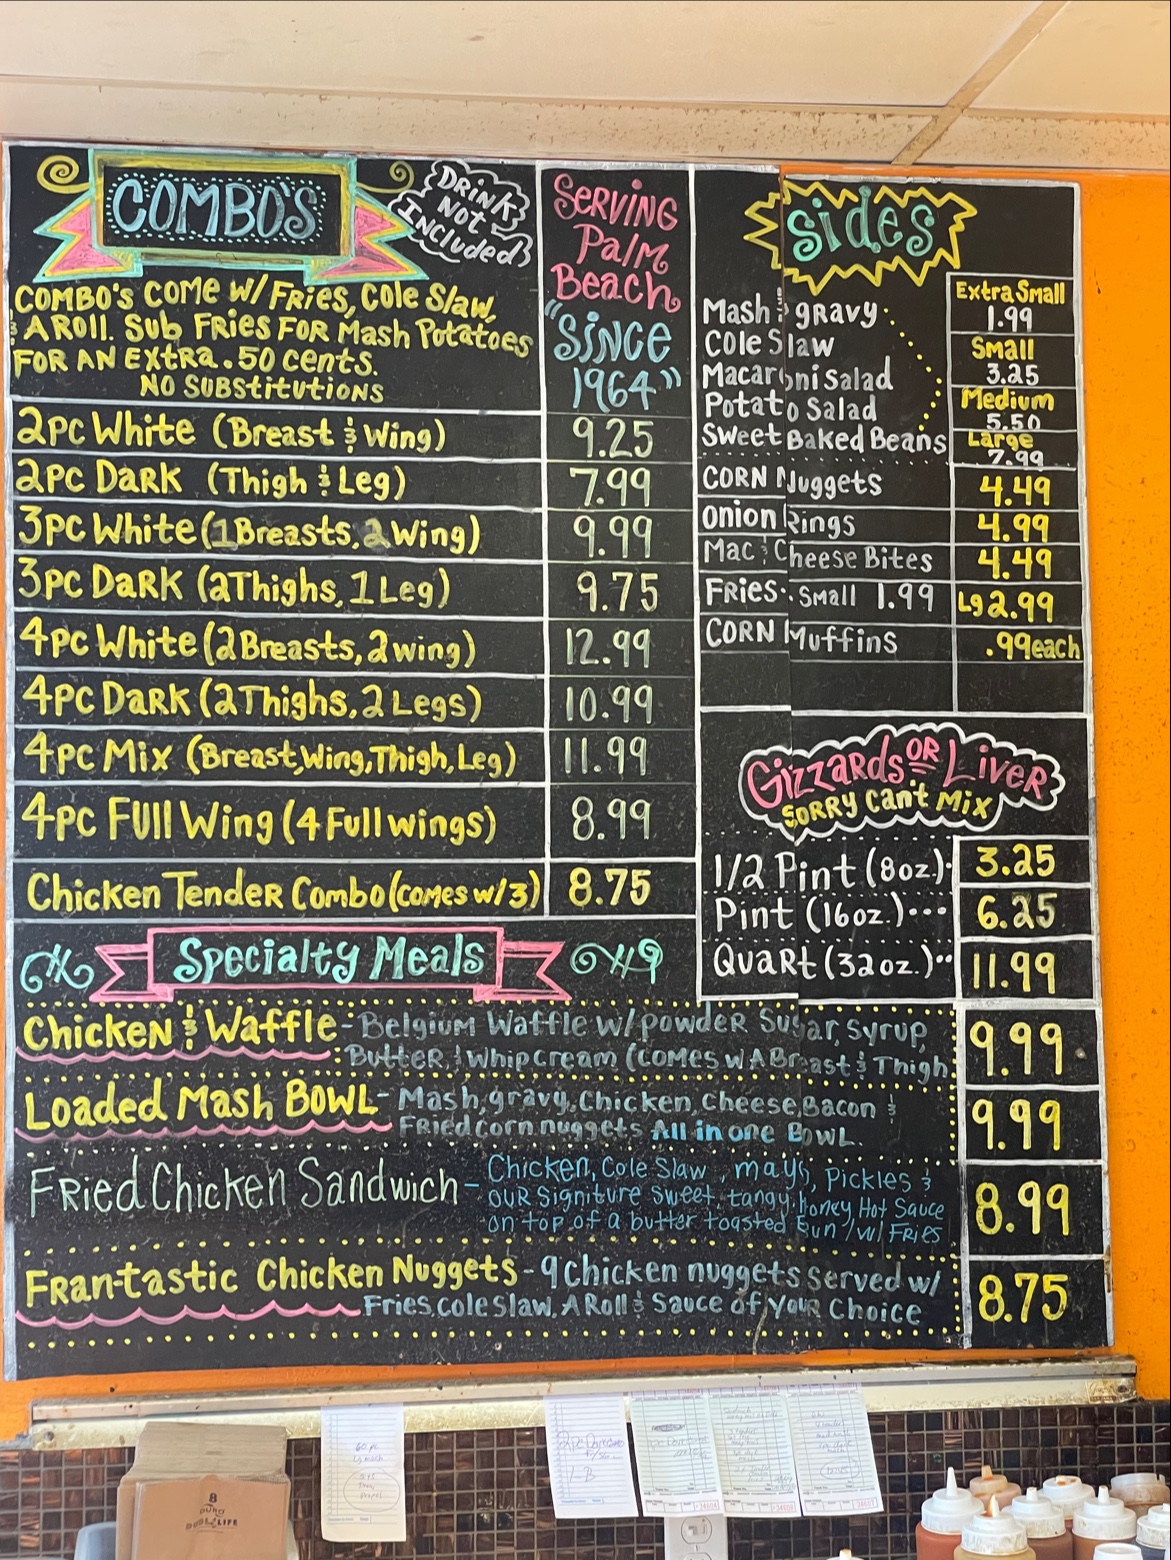 COMBO'S
DRINK
Not
Included
COMBO'S COME W/ FRIES, COLE SLAW,
& A ROLL. SUB FRIES FOR MASH POTATOES
FOR AN EXTRA .50 CENTS.
NO SUBSTITUTIONS
SERVING
PALM
BEACH
"SINCE
1964"
2PC White (Breast & Wing) 9.25
2PC DARK (Thigh & Leg) 7.99
3PC White (1 Breasts, 2 Wing) 9.99
3PC DARK (2 Thighs, 1 Leg) 9.75
4PC White (2 Breasts, 2 wing) 12.99
4PC DARK (2 Thighs, 2 Legs) 10.99
4PC Mix (Breast, Wing, Thigh, Leg) 11.99
4PC FULL Wing (4 Full wings) 8.99
Chicken Tender Combo (comes w/3) 8.75
Sides
Mash & gRAVY
Cole Slaw
Macaroni Salad
Potato Salad
Sweet Baked Beans
Extra Small
1.99
Small
3.25
Medium
5.50
Large
7.99
CORN Nuggets 4.49
Onion Rings 4.99
Mac & Cheese Bites 4.49
FRies. Small 1.99 Lg 2.99
CORN Muffins .99 each
Gizzards OR Liver
SORRY Can't Mix
1/2 Pint (8oz.) 3.25
Pint (16oz.) 6.25
QuaRt (32oz.) 11.99
Specialty Meals
Chicken & Waffle - Belgium Waffle w/ powder Sugar, Syrup, 9.99
Butter & Whip cream (comes w A Breast & Thigh
Loaded Mash Bowl - Mash, gravy, Chicken, Cheese, Bacon & 9.99
Fried corn nuggets All in one Bowl.
Fried Chicken Sandwich - Chicken, Cole Slaw, mayo, Pickles & 8.99
OUR Signiture Sweet, tangy, honey Hot Sauce
on top of a butter toasted Bun / w/ FRIES
Fran-tastic Chicken Nuggets - 9 Chicken nuggets served w/ 8.75
Fries, Cole Slaw, A Roll & Sauce of Your Choice
8
DURO
DUBL LIFE